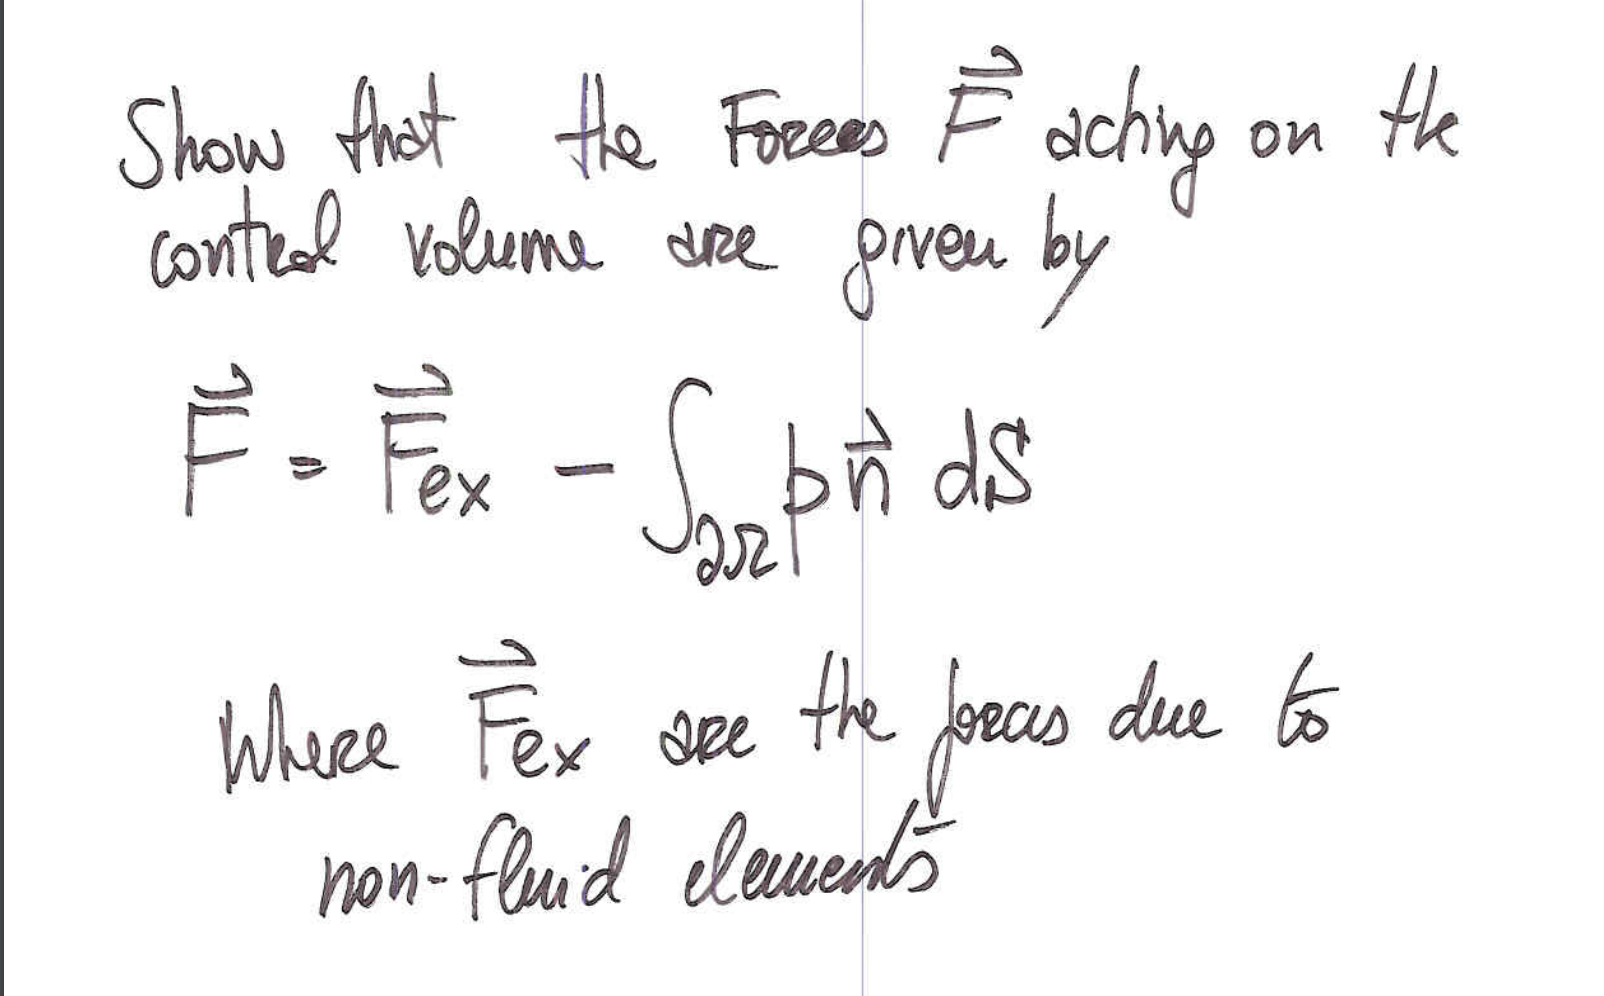 Show that the Forces F⃗ acting on the
control volume are given by
F⃗ = F⃗ex − ∫∂Ω p n⃗ dS
Where F⃗ex are the forces due to
non-fluid elements